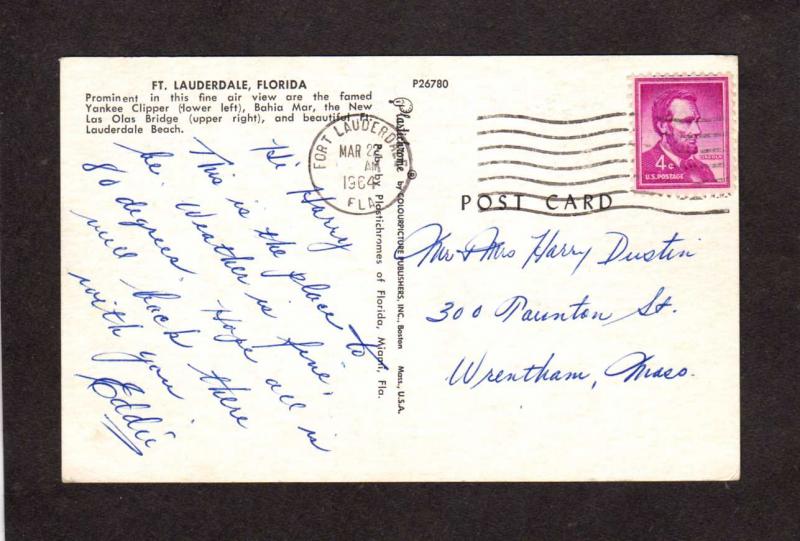 FT. LAUDERDALE, FLORIDA
Prominent in this fine air view are the famed
Yankee Clipper (lower left), Bahia Mar, the New
Las Olas Bridge (upper right), and beautiful Ft.
Lauderdale Beach.
P26780
Hi Harry
This is the place to
be. Weather is fine,
80 degrees. Hope all is
well back there
with you
Eddie
Plastichrome ® by COLOURPICTURE PUBLISHERS, INC., Boston Mass., U.S.A.
Pub. by Plastichromes of Florida, Miami, Fla.
FORT LAUDERDALE
MAR 2
AM
1964
FLA
LINCOLN
4c
U.S. POSTAGE
POST CARD
Mr & Mrs Harry Dustin
300 Taunton St.
Wrentham, Mass.